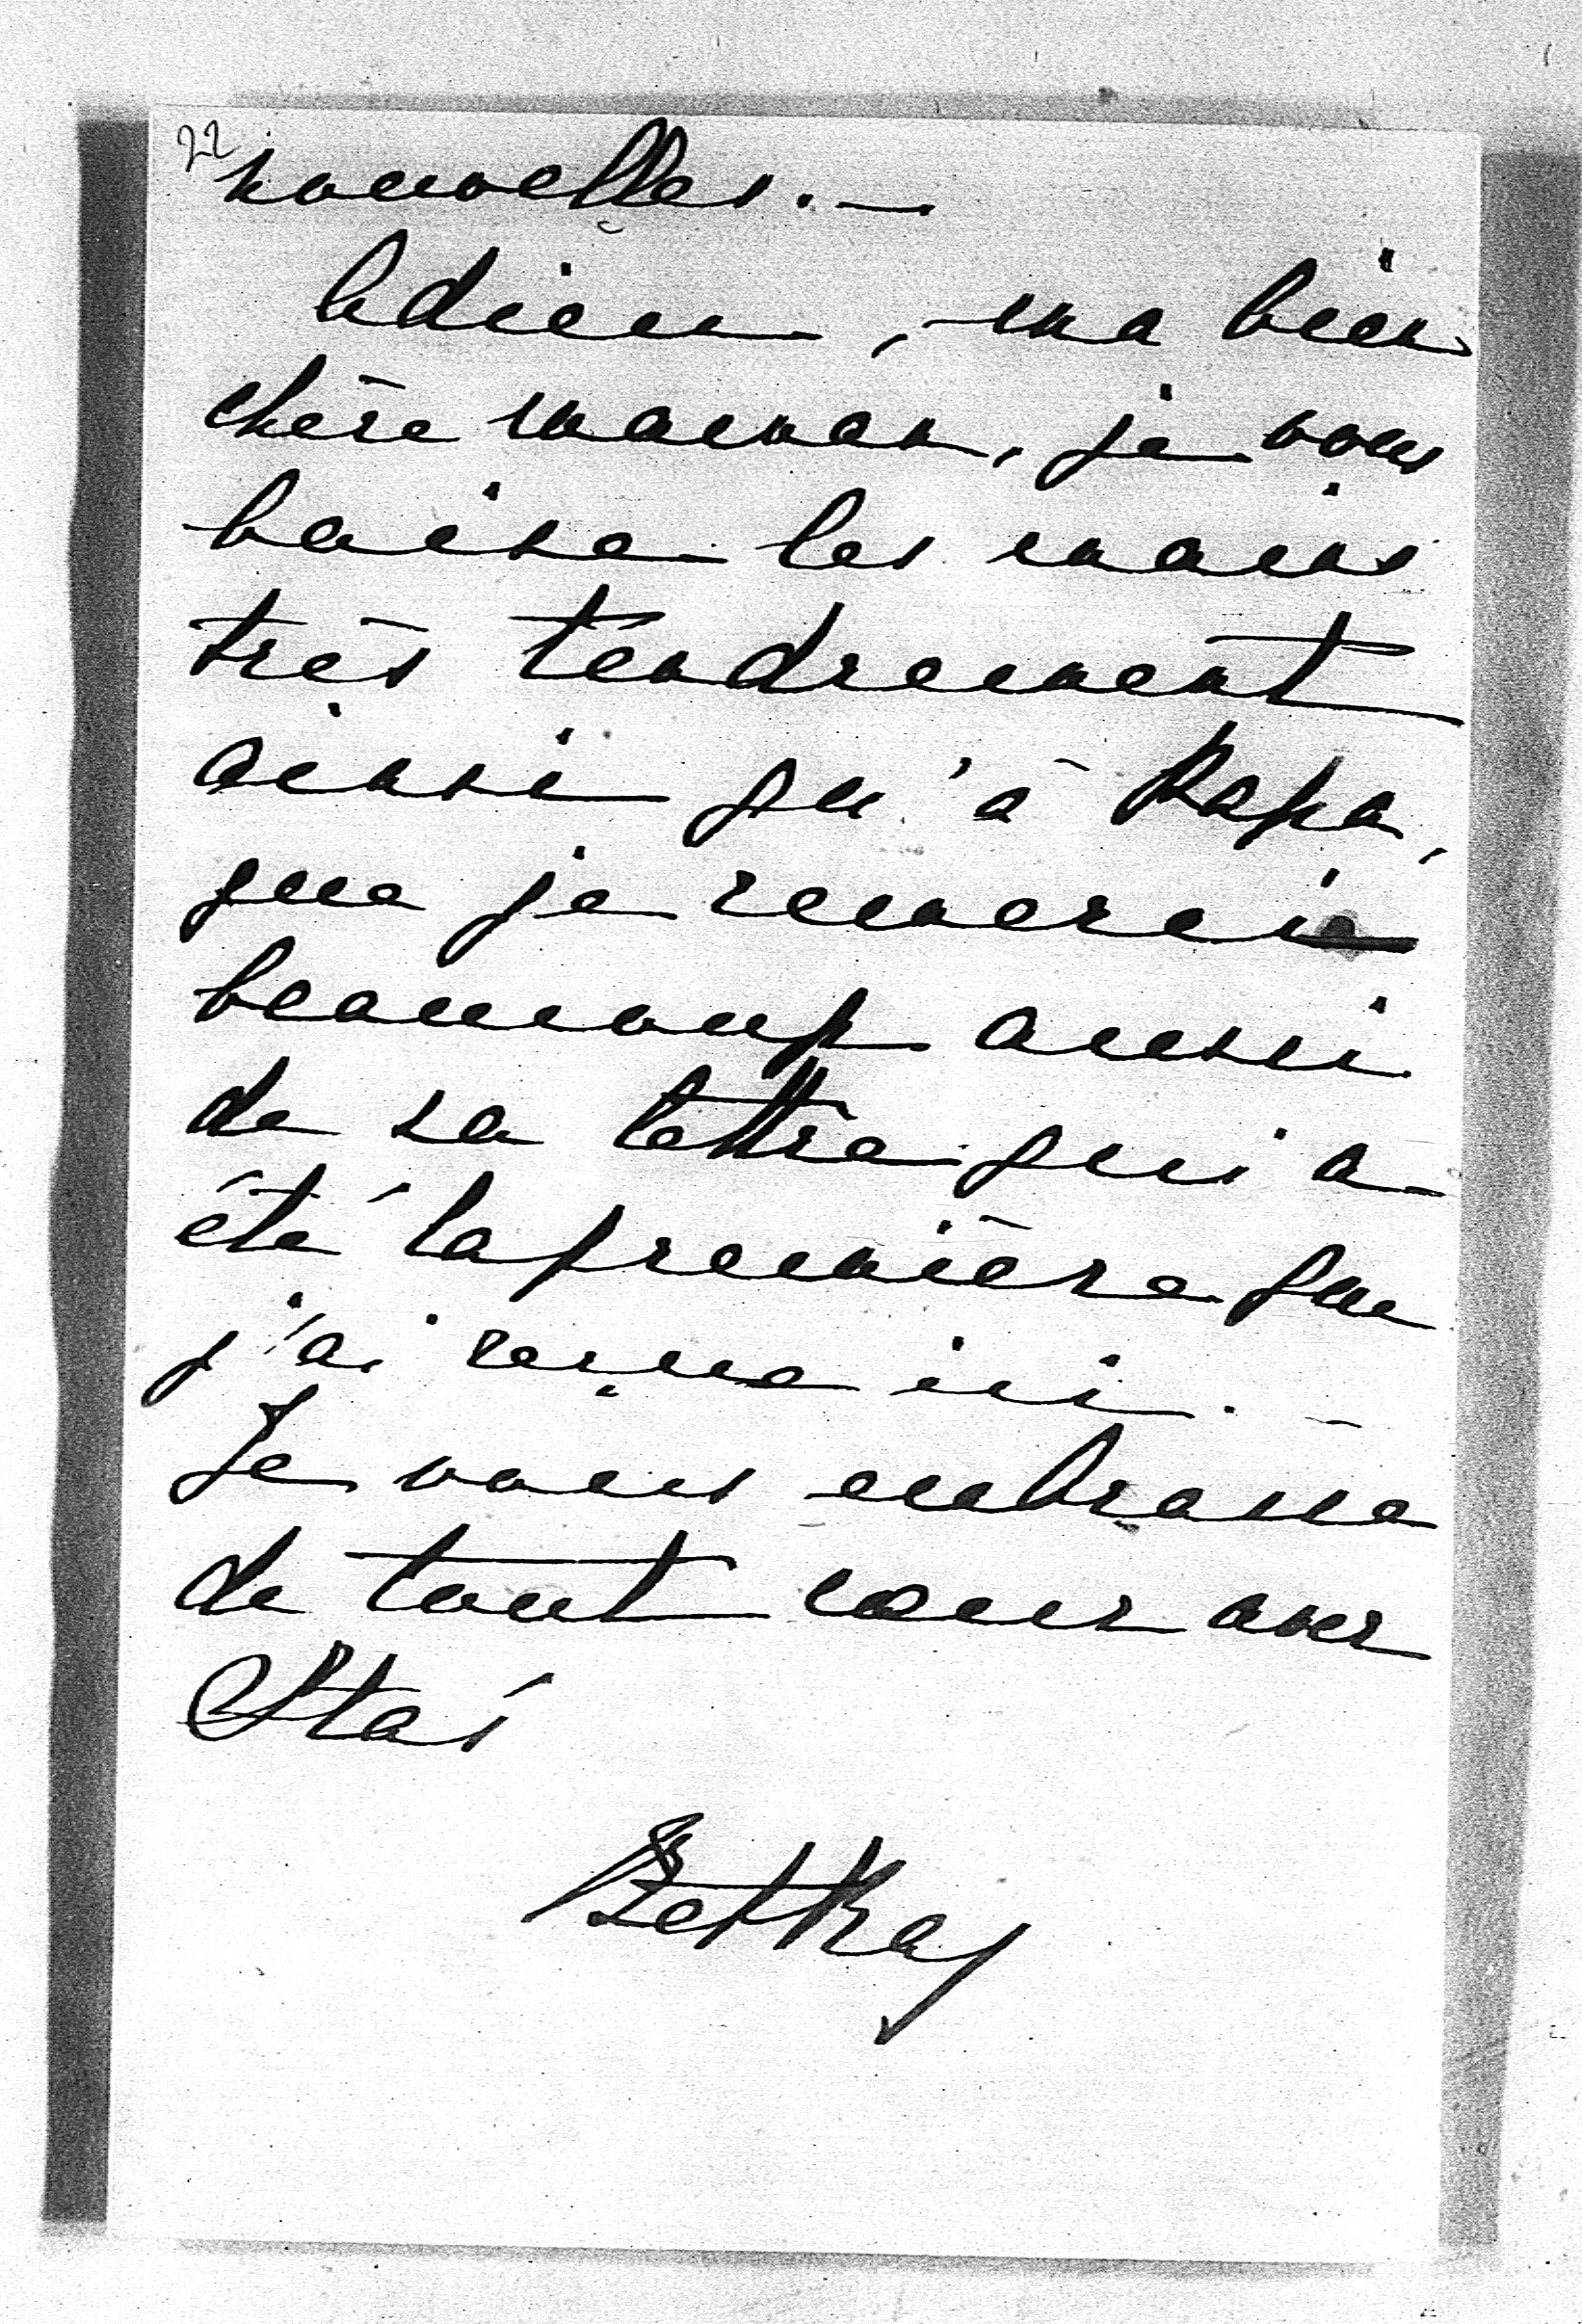 22
nouvelles. —
Adieu, ma bien
chère maman, je vous
baise les mains
très tendrement
ainsi qu'à Papa,
que je remercie
beaucoup aussi
de sa lettre qui a
été la première que
j'ai reçue ici. —
Je vous embrasse
de tout cœur avec
Stas
Betka